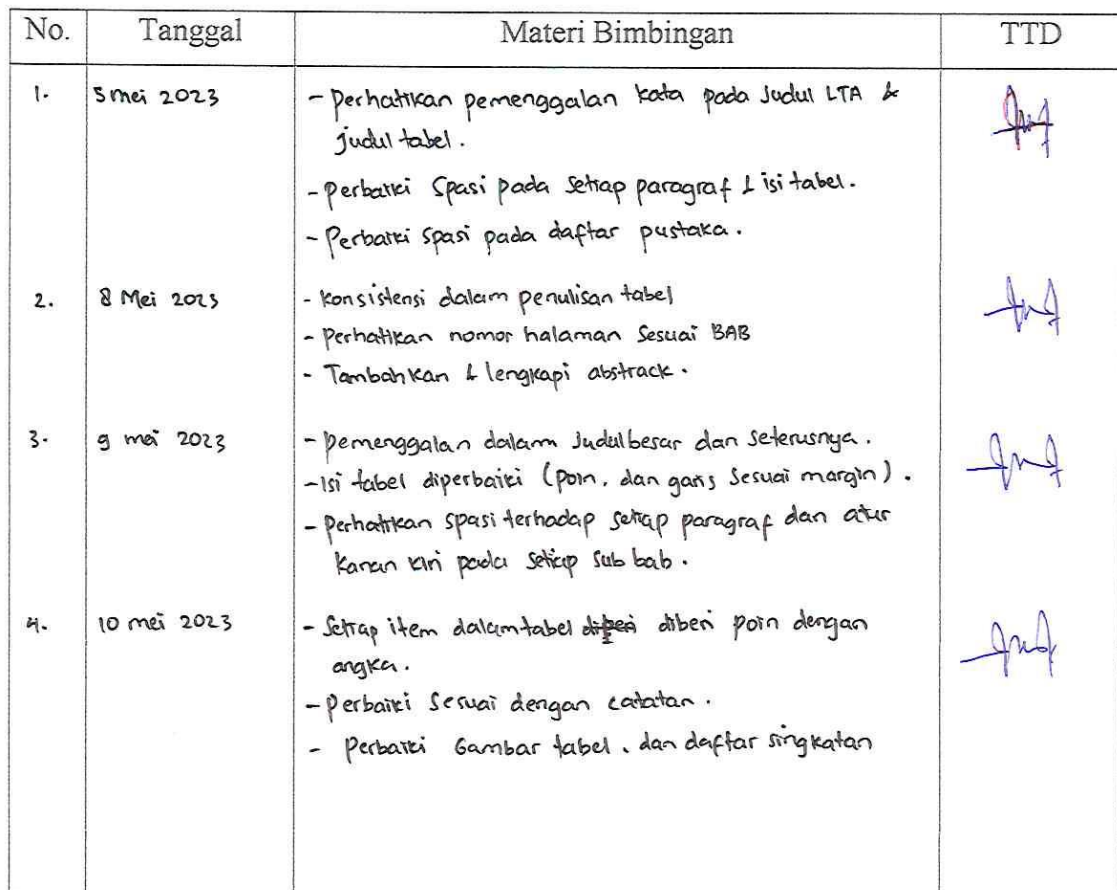 No. Tanggal Materi Bimbingan TTD
1. 5 mei 2023 - Perhatikan pemenggalan kata pada Judul LTA &
judul tabel.
- Perbaiki Spasi pada setiap paragraf & isi tabel.
- Perbaiki spasi pada daftar pustaka.
2. 8 Mei 2023 - Konsistensi dalam penulisan tabel
- Perhatikan nomor halaman Sesuai BAB
- Tambahkan & lengkapi abstrack.
3. 9 mei 2023 - Pemenggalan dalam Judul besar dan seterusnya.
- Isi tabel diperbaiki (poin, dan garis Sesuai margin).
- Perhatikan spasi terhadap setiap paragraf dan atur
Kanan kiri pada setiap sub bab.
4. 10 mei 2023 - Setiap item dalam tabel diberi poin dengan
angka.
- Perbaiki Sesuai dengan catatan.
- Perbaiki Gambar tabel, dan daftar singkatan